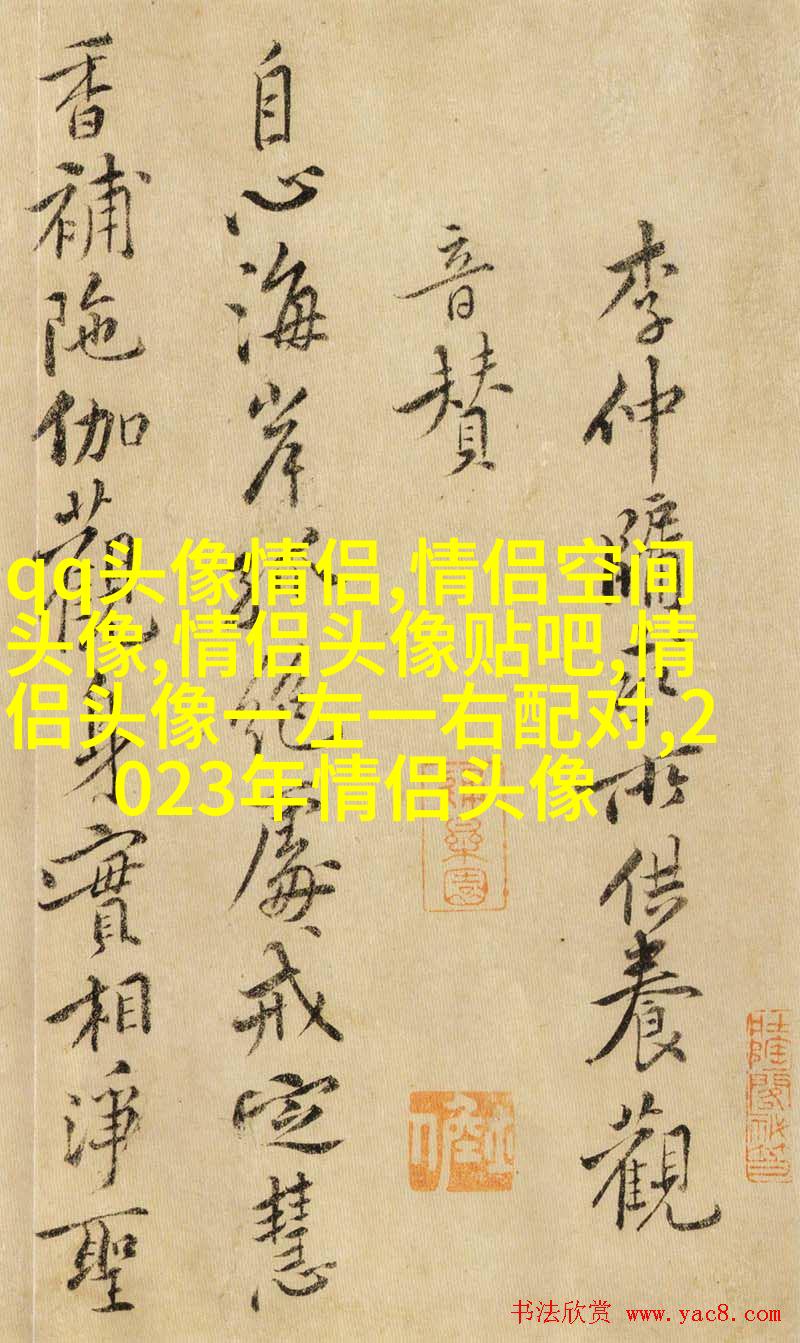 李仲牖求所供養觀
音贊
自心海岸孤絕處戒定慧
香補陁伽觀身實相淨聖
qq头像情侣,情侣空间
头像,情侣头像贴吧,情
侣头像一左一右配对,2
023年情侣头像
书法欣赏 www.yac8.com